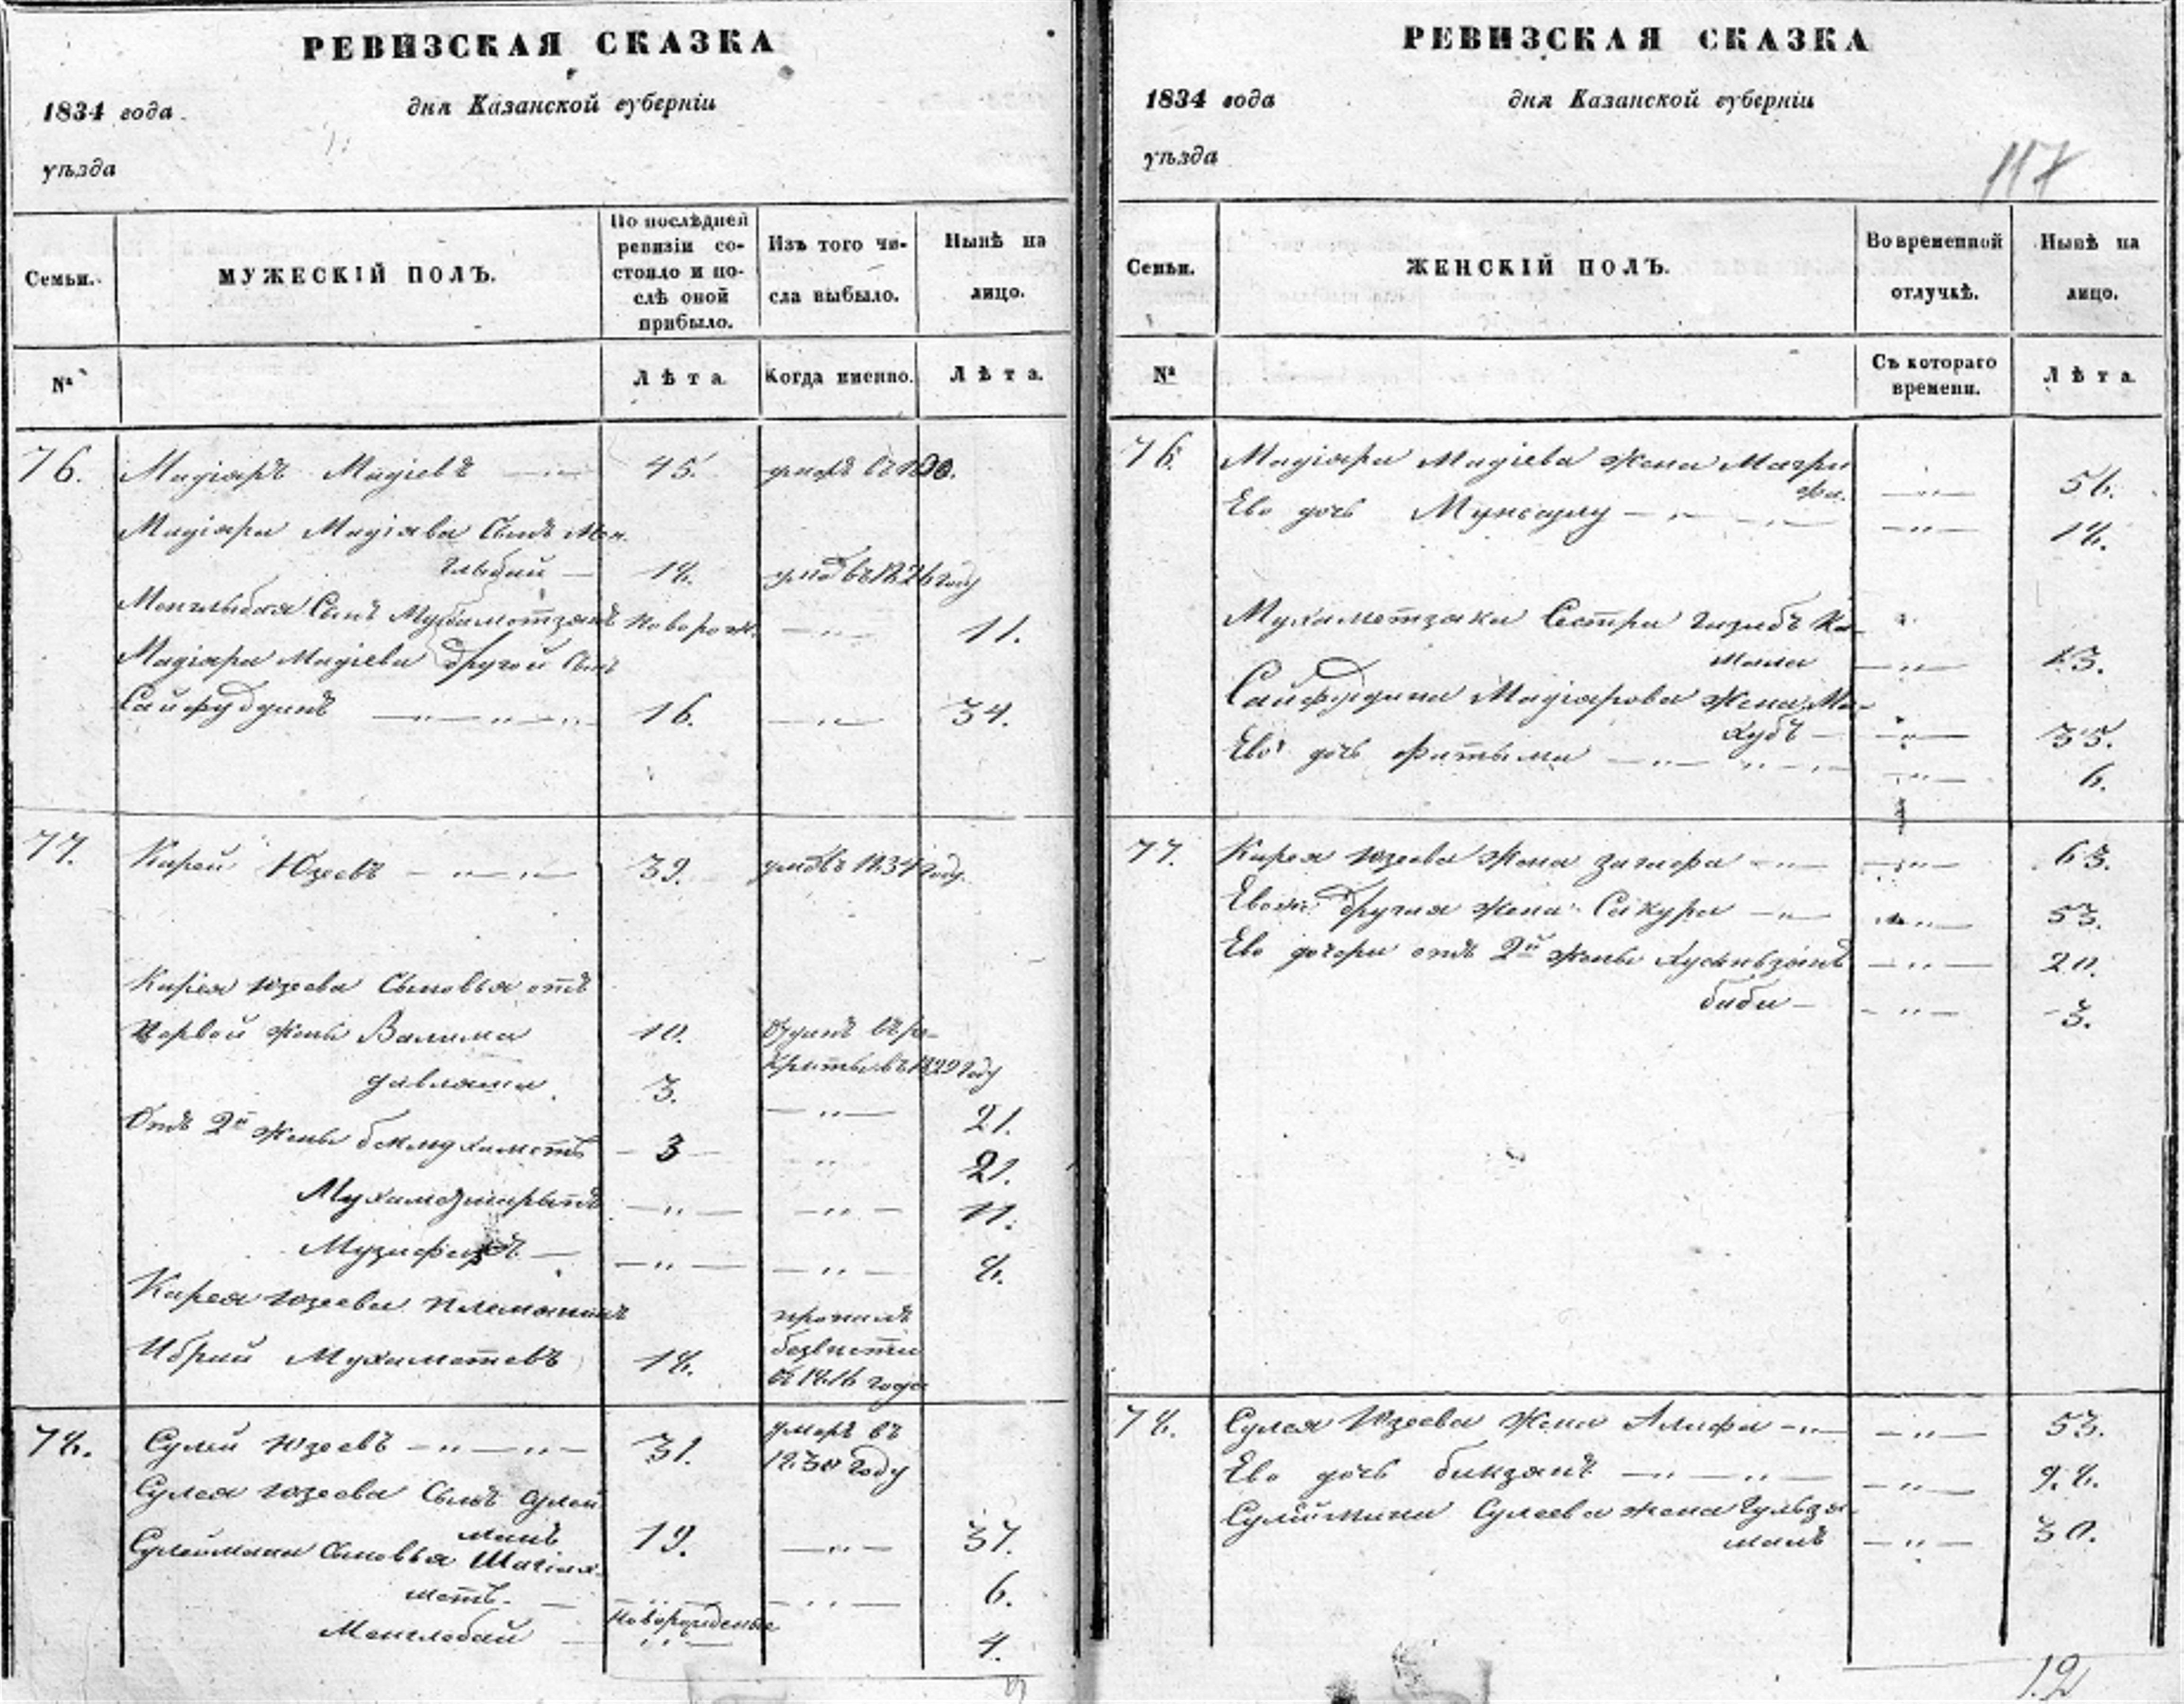 РЕВИЗСКАЯ СКАЗКА
1834 года дня Казанской губерніи
уѣзда
Семьи. МУЖЕСКІЙ ПОЛЪ. По послѣдней ревизіи состояло и послѣ оной прибыло. Изъ того числа выбыло. Нынѣ на лицо.
№ Лѣта Когда именно. Лѣта.
76. Мадіяръ Мадіевъ 45. умеръ
Мадіяра Мадіева Сынъ Мен
гльбай 18. умеръ въ 1826 году
Менглыбая Сынъ Мухаметзянъ новорож. 11.
Мадіяра Мадіева другой Сынъ
Сайфудинъ 16. 34.
77. Карей Юзеевъ 39. умеръ въ 1834 году.
Карея Юзеева Сыновья отъ
Первой жены Валима 10. отданъ въ ре-
круты въ 1829 году
давлетша 3. 21.
Отъ 2й жены бекмухаметъ 3 21.
11.
8.
Карея Юзеева племянникъ пропалъ
Ибрай Мухаметевъ 18. безвести
въ 1816 годе
78. Сулей Юзеевъ 31. умеръ въ
1830 году
Сулея Юзеева Сынъ Сулей
манъ 19. 37.
Сулеймана Сыновья Шагіах
метъ 6.
Менглебай Новорожденые 4.
РЕВИЗСКАЯ СКАЗКА
1834 года дня Казанской губерніи
уѣзда 117
Семьи. ЖЕНСКІЙ ПОЛЪ. Во временной отлучкѣ. Нынѣ на лицо.
№ Съ котораго времени. Лѣта
76. Мадіяра Мадіева жена Магри
фа. 56.
Ево дочь 18.
Мухаметзяна Сестра Гизябъ Ка-
мала 13.
Сайфудина Мадіярова жена Ма-
хубъ 35.
Ево дочь Фатыма 6.
77. Карея Юзеева жена Загафра 63.
Ево же другая жена Сакура 53.
Ево дочери отъ 2й жены Хуснизянъ 20.
биби 3.
78. Сулея Юзеева жена Алифа 53.
Ево дочь бикзянъ 9.8.
Сулеймана Сулеева жена Гульзя-
малъ 30.
12